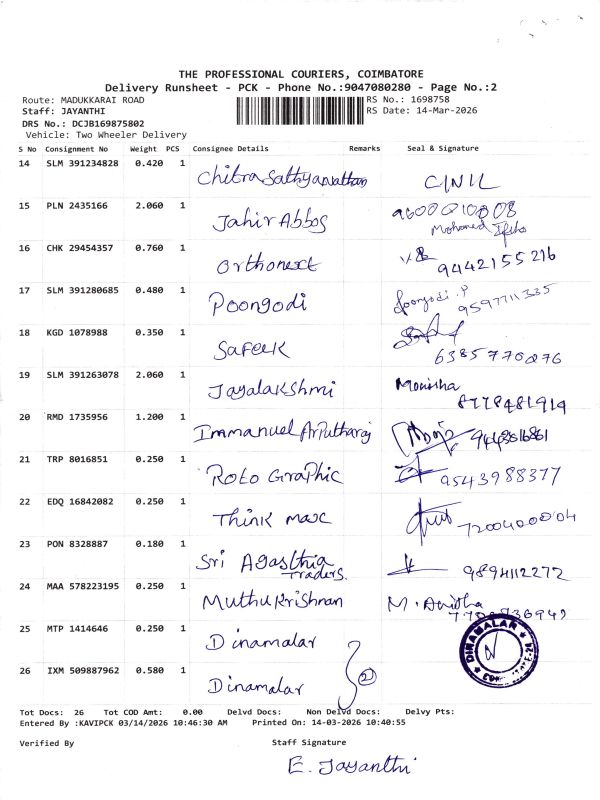 THE PROFESSIONAL COURIERS, COIMBATORE
Delivery Runsheet - PCK - Phone No.:9047080280 - Page No.:2
Route: MADUKKARAI ROAD
Staff: JAYANTHI
DRS No.: DCJB169875802
Vehicle: Two Wheeler Delivery
RS No.: 1698758
RS Date: 14-Mar-2026
S No Consignment No Weight PCS Consignee Details Remarks Seal & Signature
14 SLM 391234828 0.420 1 Chitra Sathyanathan CINIL
15 PLN 2435166 2.060 1 Jahir Abbos
Mohamed
16 CHK 29454357 0.760 1 Orthonext 9442155216
17 SLM 391280685 0.480 1 Poongodi Poongodi .P 9597711335
18 KGD 1078988 0.350 1 Safeek 6385770076
19 SLM 391263078 2.060 1 Jayalakshmi Monisha
8778481914
20 RMD 1735956 1.200 1 Immanuel Arputharaj
21 TRP 8016851 0.250 1 Roto Graphic 9543988377
22 EDQ 16842082 0.250 1 Think max 7200400004
23 PON 8328887 0.180 1 Sri Agasthia Traders 9894112272
24 MAA 578223195 0.250 1 Muthukrishnan M. Anitha
25 MTP 1414646 0.250 1 Dinamalar
DINAMALAR
26 IXM 509887962 0.580 1 Dinamalar 2
Tot Docs: 26 Tot COD Amt: 0.00 Delvd Docs: Non Delvd Docs: Delvy Pts:
Entered By :KAVIPCK 03/14/2026 10:46:30 AM Printed On: 14-03-2026 10:40:55
Verified By Staff Signature
E. Jayanthi